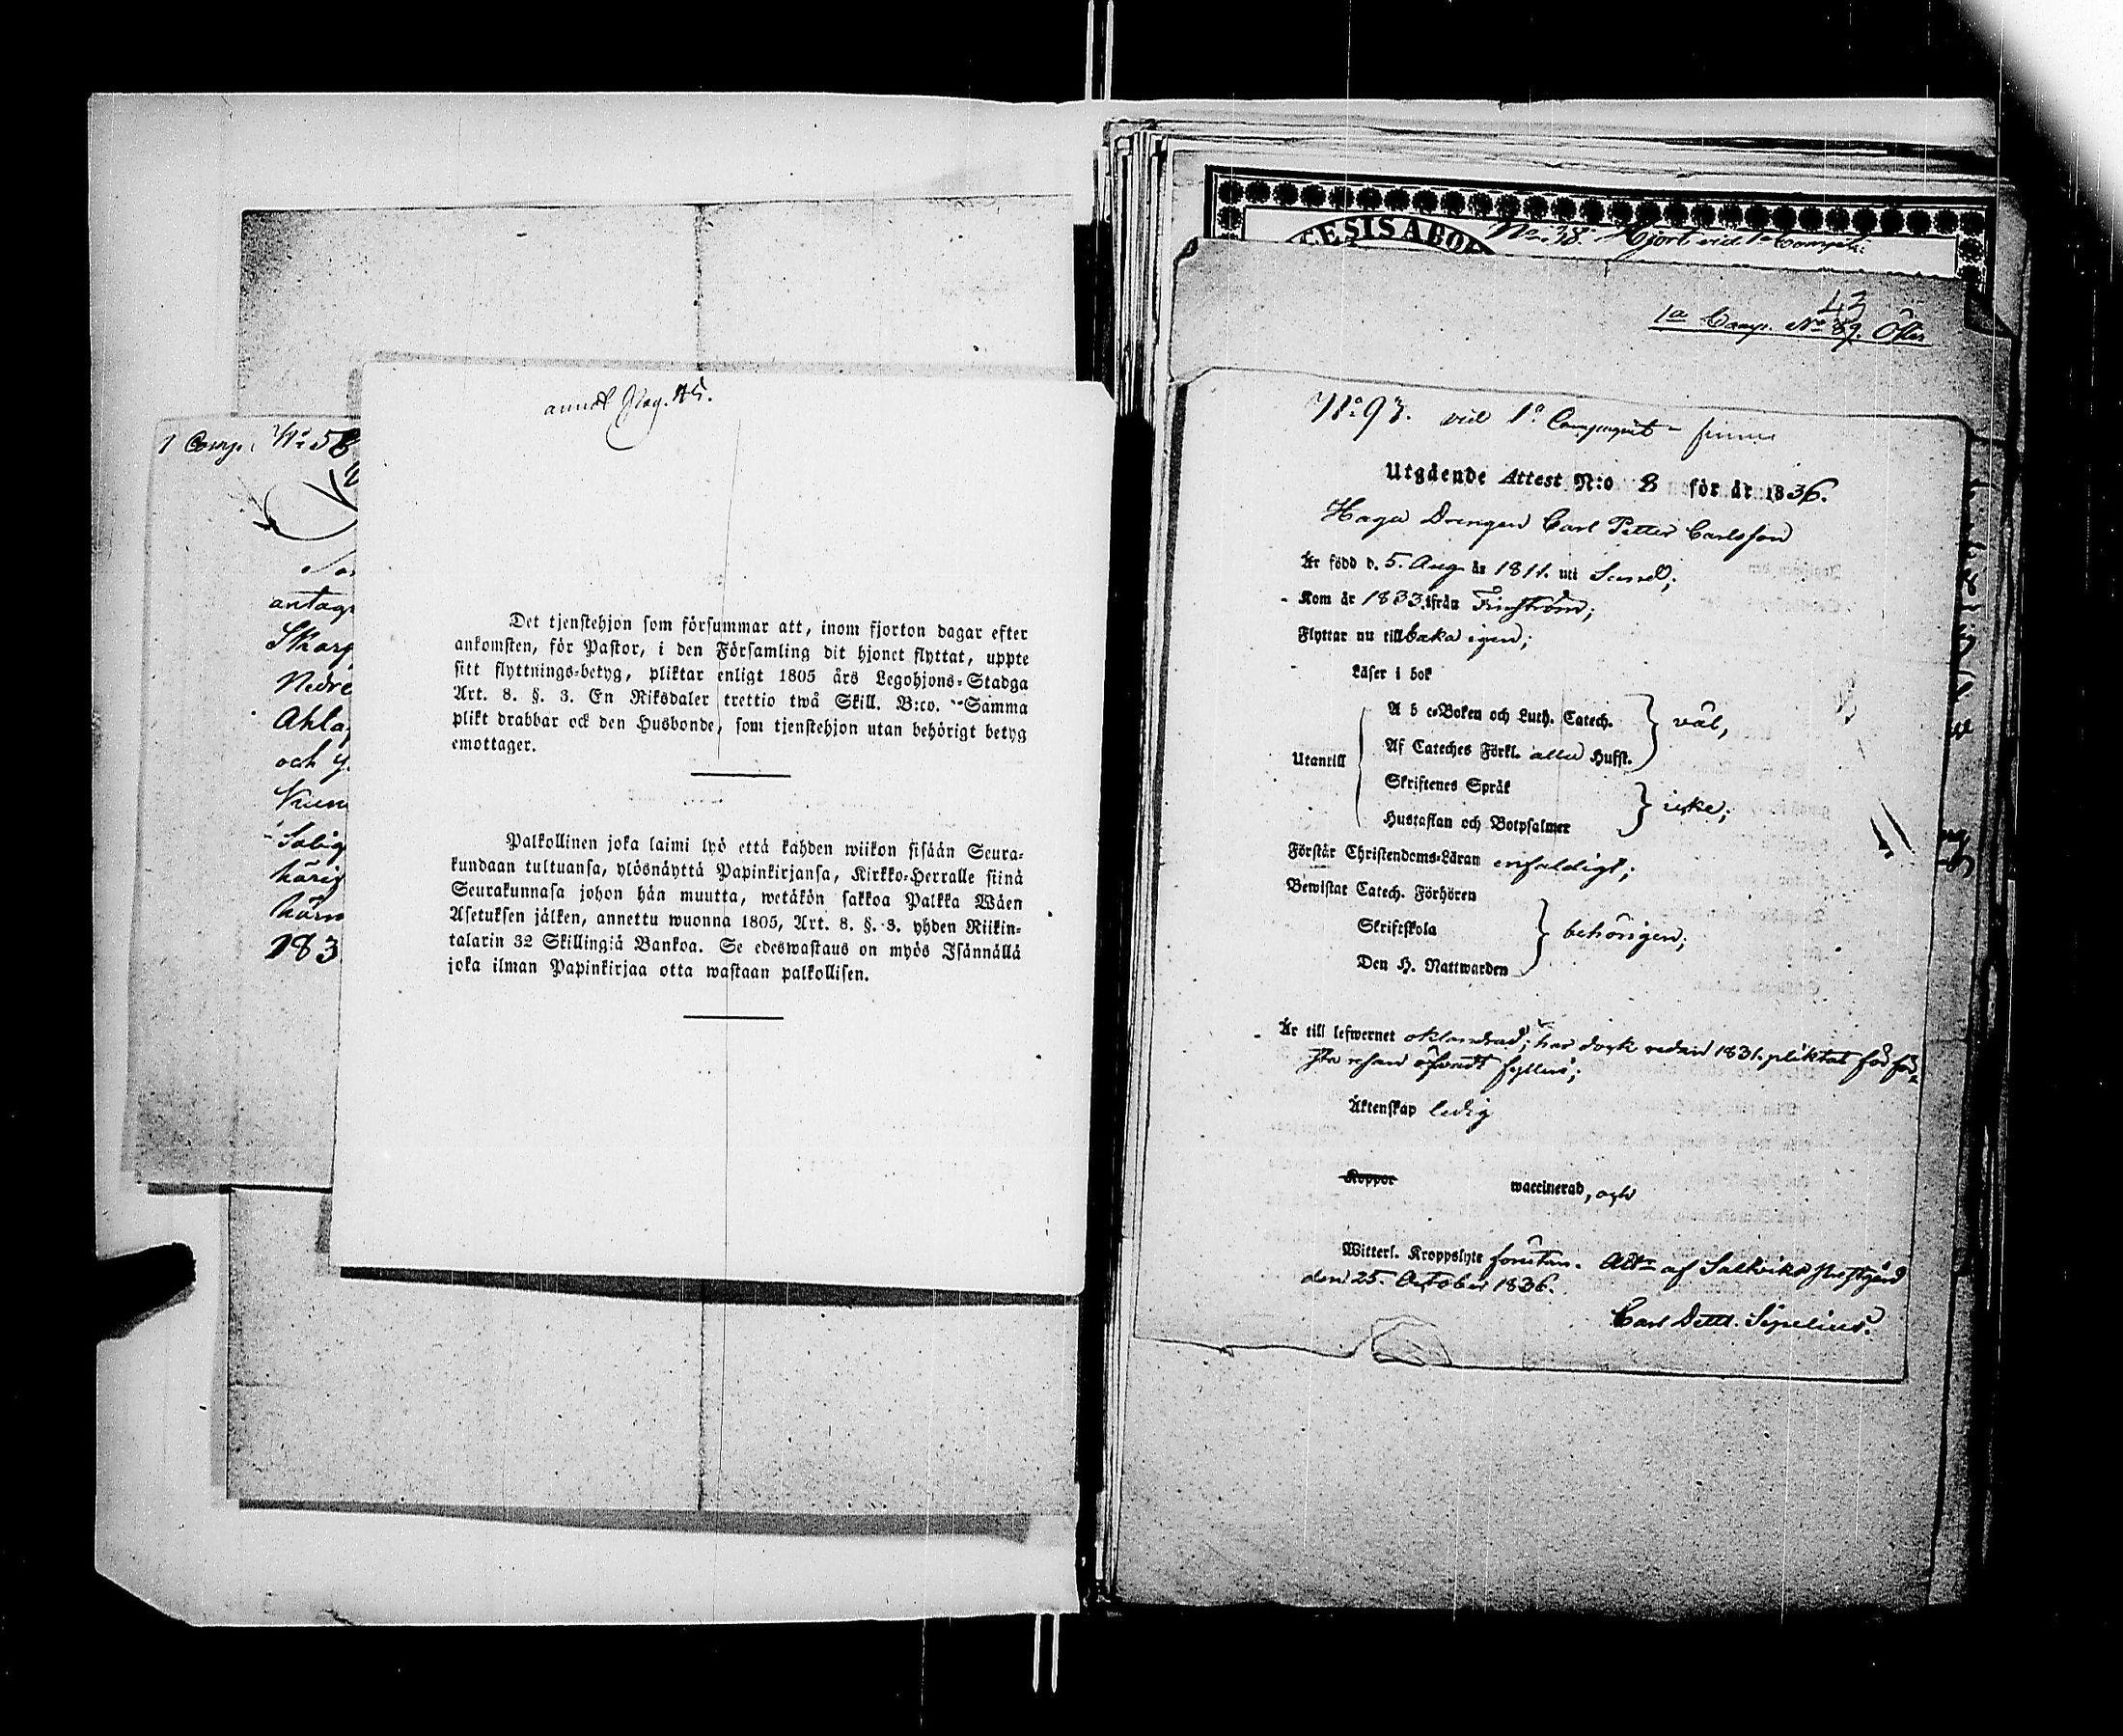 1 Comp. No 58
antag
Skarp
Nedre
Ahla
och
183
Det tjenstehjon som försummar att, inom fjorton dagar efter
ankomsten, för Pastor, i den Församling dit hjonet flyttat, uppte
sitt flyttnings-betyg, pliktar enligt 1805 års Legohjons-Stadga
Art. 8. §. 3. En Riksdaler trettio twå Skill. B:co. Samma
plikt drabbar ock den Husbonde, som tjenstehjon utan behörigt betyg
emottager.
Palkollinen joka laimi lyö että kahden wiikon sisään Seura-
kundaan tultuansa, ylösnäyttä Papinkirjansa, Kirkko-Herralle siinä
Seurakunnasa johon hän muutta, wetäkön sakkoa Palkka Wäen
Asetuksen jälken, annettu wuonna 1805, Art. 8. §. 3. yhden Riikin-
talarin 32 Skillingiä Bankoa. Se edeswastaus on myös Isännällä
joka ilman Papinkirjaa otta wastaan palkollisen.
CESIS ABO
No 38. Hjort vid 1 Comp:
43
1a Comp. No 89. Öster
No 97. vid 1a Compagniet
Utgående Attest N:o 8 för år 1836.
Haga Drengen Carl Petter Carlsson
Är född d. 5. Aug år 1811. uti Sund;
Kom år 1833. ifrån Finström;
Flyttar nu tillbaka igen;
Läser i bok
A b c-Boken och Luth. Catech. } väl,
Af Cateches Förkl. alla Hufst.
Utantill
Skriftenes Språk } icke;
Hustaflan och Botpsalmer
Förstår Christendoms-Läran enfaldigt;
Bewistat Catech. Förhören
Skriftskola } behörigen;
Den H. Nattwarden
Är till lefwernet oklandrad; har dock redan 1831. pliktat för för-
sta resan öfvadt fylleri;
Äktenskap ledig
Koppor waccinerad, och
Witterl. Kroppslyte förutan. Att. af Saltviks Prestgård
den 25. October 1836.
Carl Dettl. Sipelius.